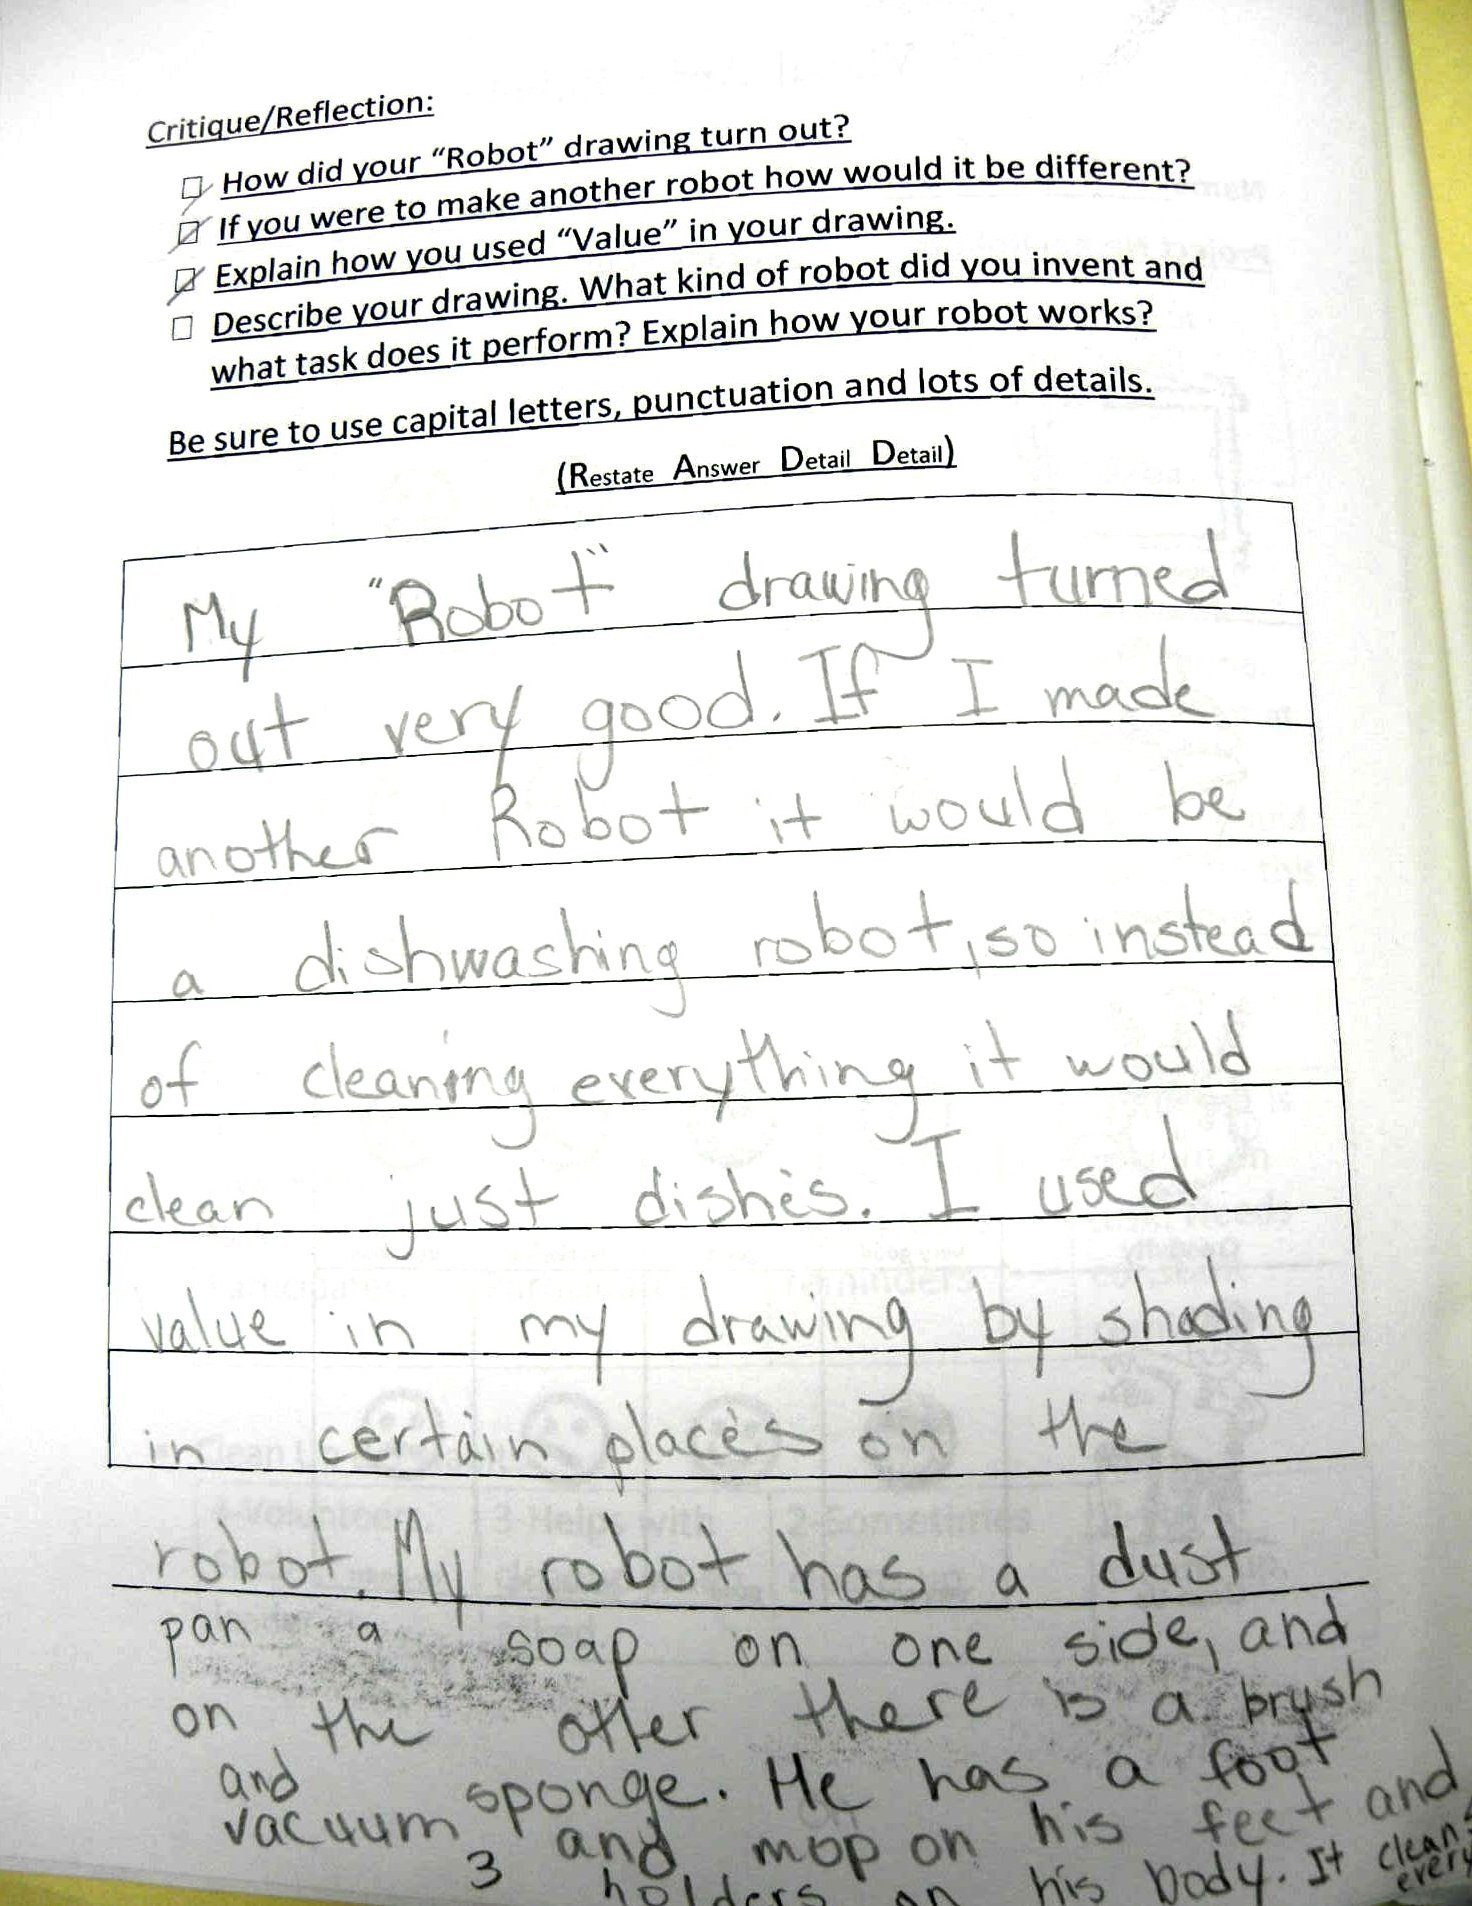 Critique/Reflection:
How did your “Robot” drawing turn out?
If you were to make another robot how would it be different?
Explain how you used “Value” in your drawing.
Describe your drawing. What kind of robot did you invent and
what task does it perform? Explain how your robot works?
Be sure to use capital letters, punctuation and lots of details.
(Restate Answer Detail Detail)
My "Robot" drawing turned
out very good. If I made
another Robot it would be
a dishwashing robot, so instead
of cleaning everything it would
clean just dishes. I used
value in my drawing by shading
in certain places on the
robot. My robot has a dust
pan a soap on one side, and
on the other there is a brush
and sponge. He has a foot
vacuum and mop on his feet and
holders on his body. It clean
every
3